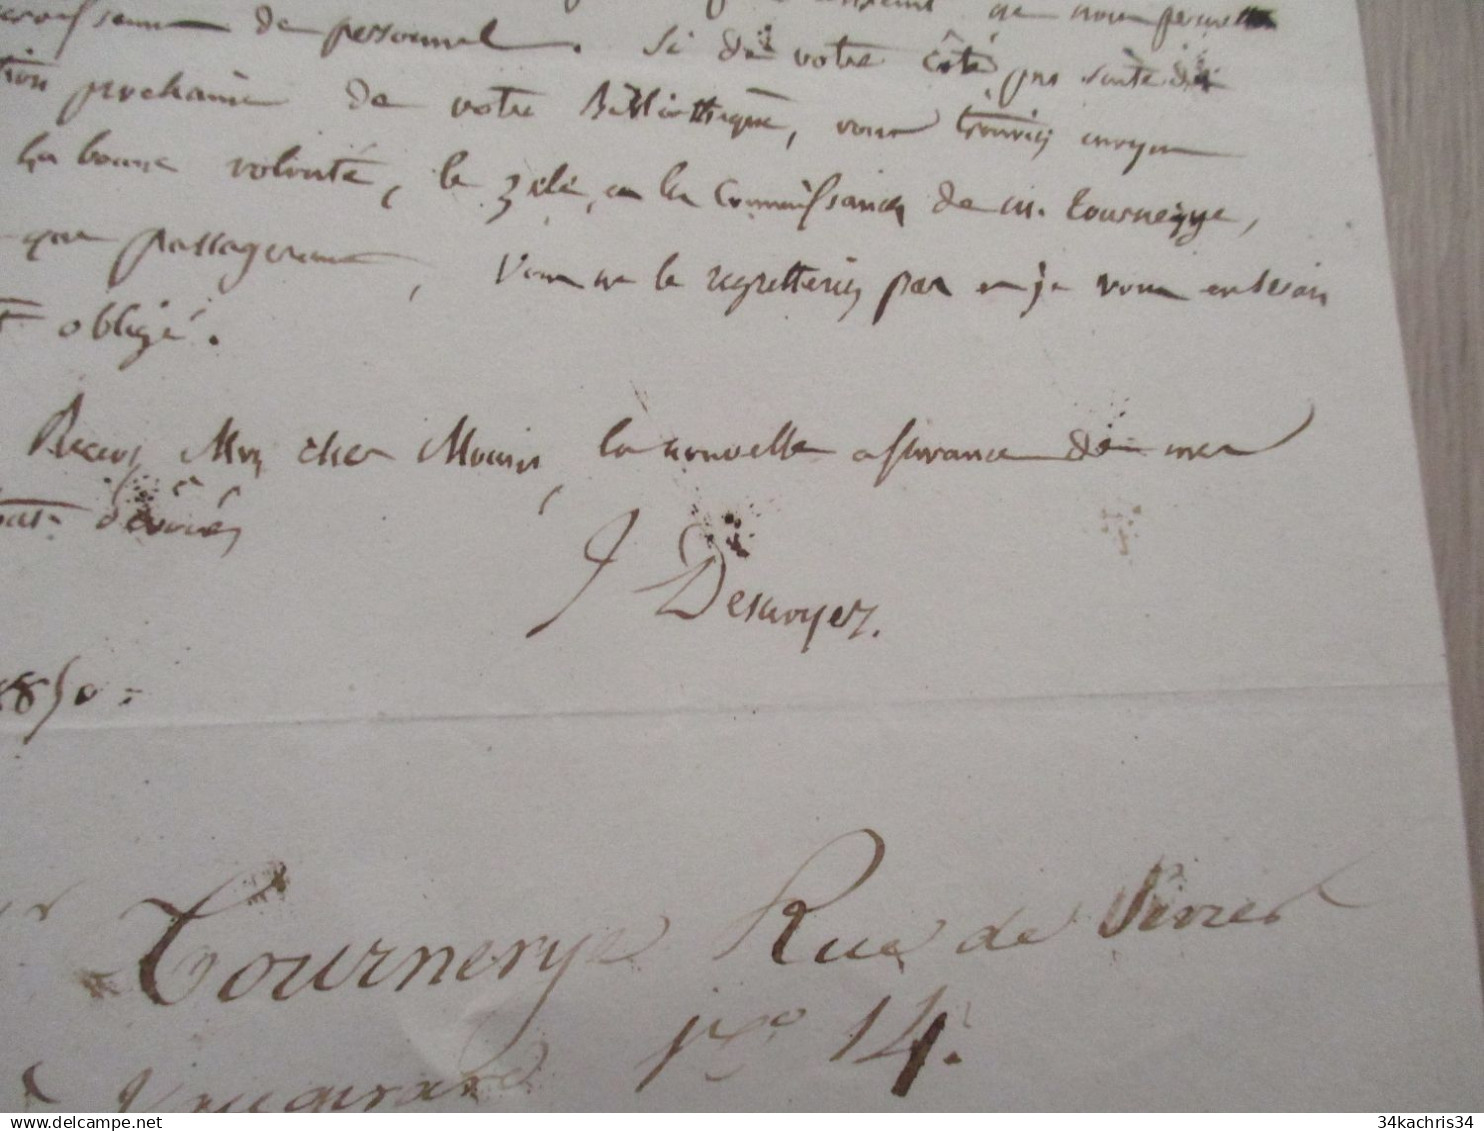 de personnel. Si de votre côté, par suite de
prochaine de votre Bibliothèque, vous trouviez
la bonne volonté, le zèle, et les connaissances de M. Tournerye,
que passagerement, vous ne le regretteriez pas et je vous en serai
obligé.
Recevez Mon cher Monsieur, la nouvelle assurance de mes
dévoués
J Desnoyers.
1850.
Tournerye Rue de Sèvres
No 14.
Vaugirard
34kachris34